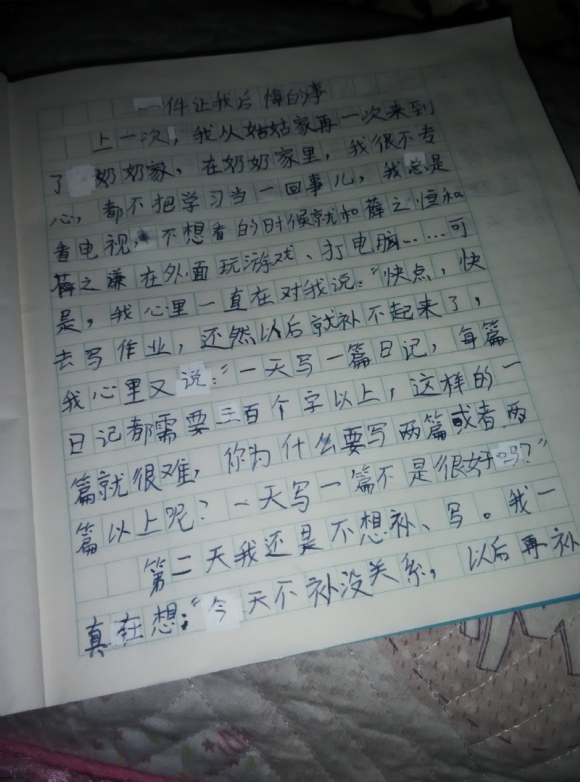 一件让我后悔的事
上一次，我从姑姑家再一次来到
了奶奶家，在奶奶家里，我很不专
心，都不把学习当一回事儿，我总是
看电视，不想看的时候就和薛之恒和
薛之谦在外面玩游戏、打电脑……可
是，我心里一直在对我说：“快点，快
去写作业，还然以后就补不起来了，
我心里又说：“一天写一篇日记，每篇
日记都需要三百个字以上，这样的一
篇就很难，你为什么要写两篇或者两
篇以上呢？一天写一篇不是很好吗？”
第二天我还是不想补、写。我一
真在想：“今天不补没关系，以后再补